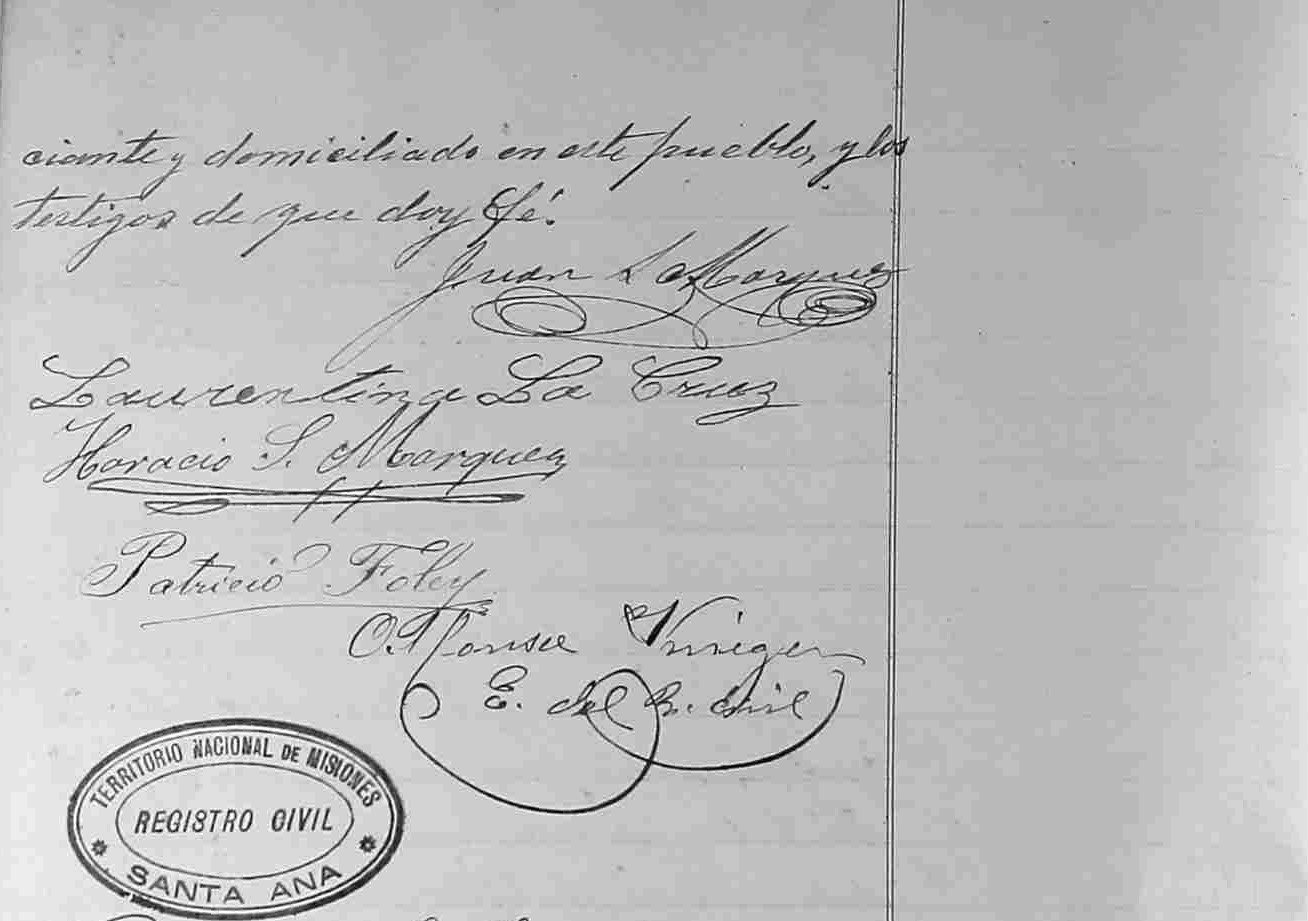 ciante y domiciliado en este pueblo, y los
testigos de que doy fé.
Juan L Marquez
Laurentina La Cruz
Horacio S. Marquez
Patricio Foley
E. del R. Civil
TERRITORIO NACIONAL DE MISIONES
REGISTRO CIVIL
SANTA ANA